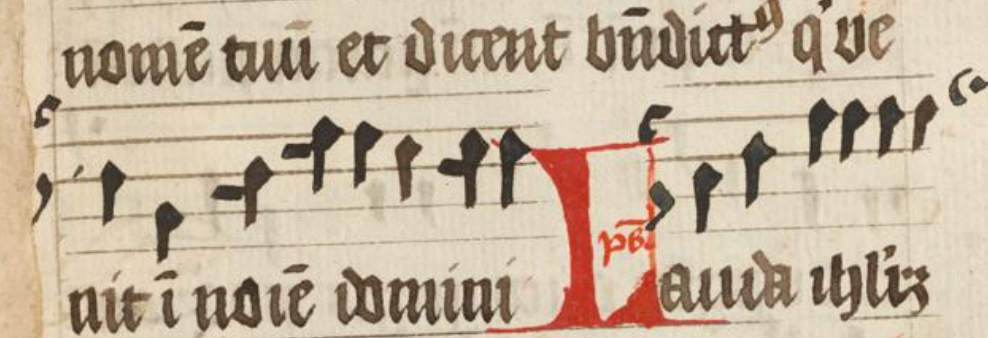 nomē tuū et dicent bn̄dictꝰ q̇ ve
nit ī noīe domini ps̄ Lauda ihl̓rꝫ